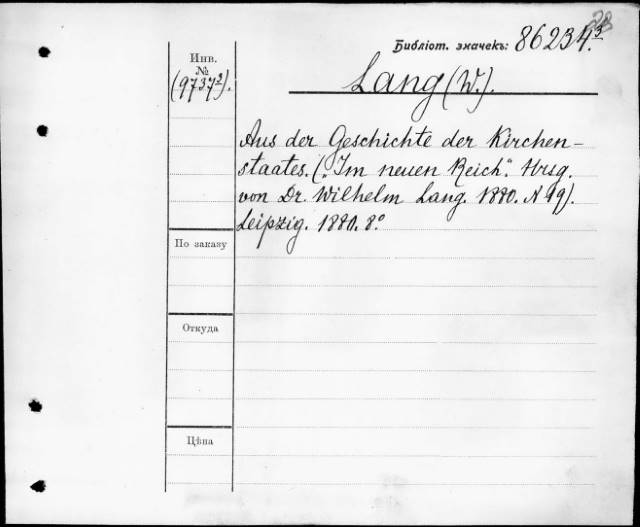 Библіот. значекъ: 86234.³
Инв.
№
(9737²).
Lang (W.).
Aus der Geschichte der Kirchen-
staates. („Im neuen Reich". Hrsg.
von Dr. Wilhelm Lang. 1880. N 49).
Leipzig. 1880. 8.°
По заказу
Откуда
Цѣна